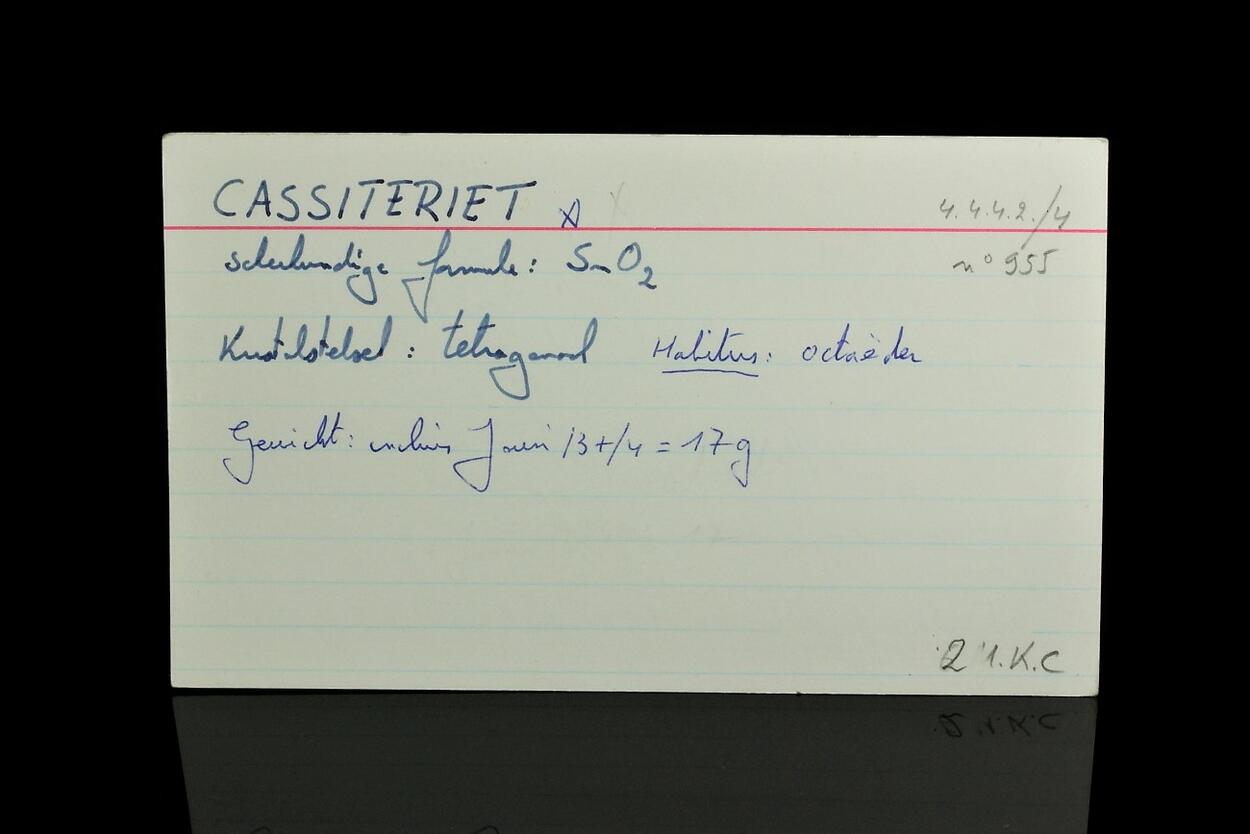 CASSITERIET X
4.4.4.2./4
scheikundige formule: SnO2
n° 955
Kristalstelsel: tetragonaal Habitus: octaëder
Gewicht: 13+/4 = 17g
2 1.K.C